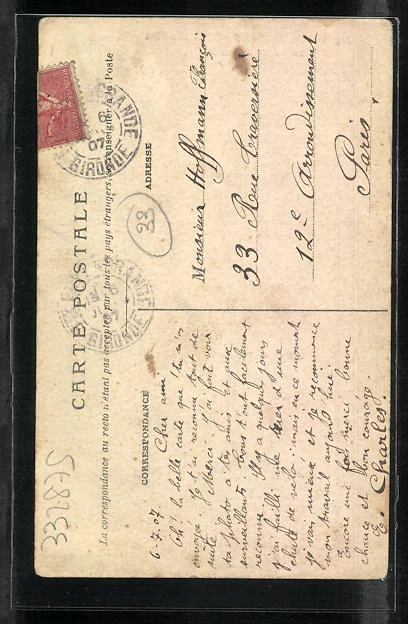 CARTE POSTALE
La correspondance au recto n'étant pas acceptée par tous les pays étrangers, se renseigner à la Poste
CORRESPONDANCE
ADRESSE
6-7. 07
Cher ami
Oh! la belle carte que tu m'as
envoyée. Je t'ai reconnu tout de
suite. Merci. J'ai fait voir
ta photo à tes amis et aux
surveillants. Tous t'ont facilement
reconnu. Il y a quelques jours
j'ai failli me tuer d'une
chute de vélo: mais en ce moment
je vais mieux et je recommence
mon travail aujourd'hui
encore une fois merci bonne
chance et bon courage
E. Charles
33
Monsieur Hoffmann François
33 Rue Traversière
12e Arrondissement
Paris.
GIRONDE
GIRONDE
332875